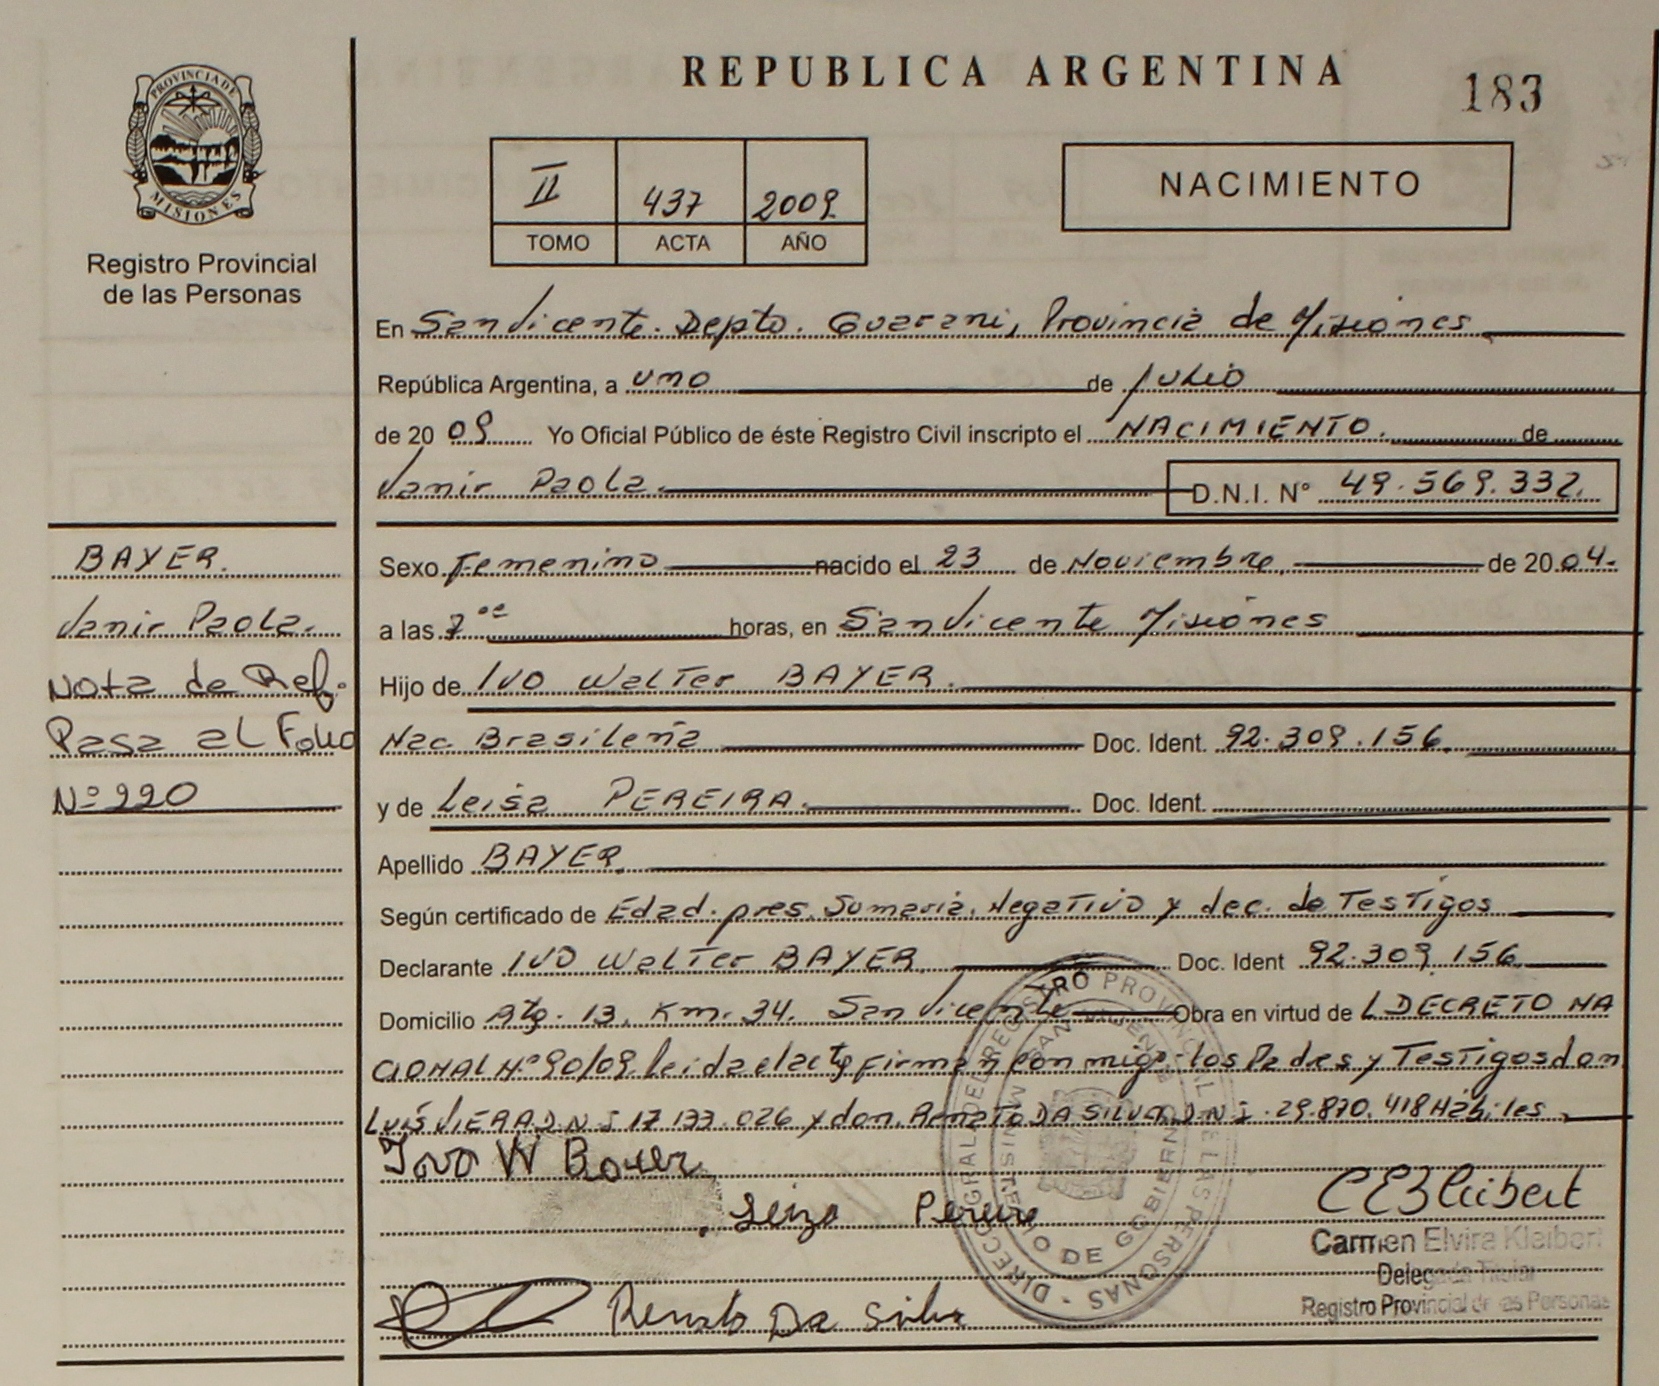 REPUBLICA ARGENTINA
183
PROVINCIA DE
MISIONES
Registro Provincial
de las Personas
II 437 2009
TOMO ACTA AÑO
NACIMIENTO
En San Vicente. Depto. Guarani, Provincia de Misiones
República Argentina, a uno de Julio
de 20 09 Yo Oficial Público de éste Registro Civil inscripto el NACIMIENTO. de
Vanir Paola. D.N.I. N° 49.569.332.
BAYER.
Vanir Paola.
Nota de Ref.
Pasa al Folio
Nº 220
Sexo Femenino nacido el 23 de Noviembre. de 20 04.
a las 7 horas, en San Vicente Misiones
Hijo de IVO Walter BAYER.
Nac Brasileña Doc. Ident. 92.309.156.
y de Leisa PEREIRA. Doc. Ident.
Apellido BAYER.
Según certificado de Edad. pres. Sumaria. Negativo y dec. de Testigos
Declarante IVO Walter BAYER. Doc. Ident 92.309.156
Domicilio Km. 34. San Vicente Obra en virtud de L DECRETO NA
CIONAL Nº 90/09. leida el acta firman conmigo los Padres y Testigos don
LUIS VIERA D.N.I 17.133.026 y don. Renato DA SILVA. D.N.I. 29.870.418 Habiles.
Ivo W Bayer
Leiza Pereira
Renato Da Silva
DIRECC. GRAL DEL REGISTRO PROVINCIAL DE LAS PERSONAS
MINISTERIO DE GOBIERNO
Carmen Elvira Kleibert
Delegada Titular
Registro Provincial de las Personas